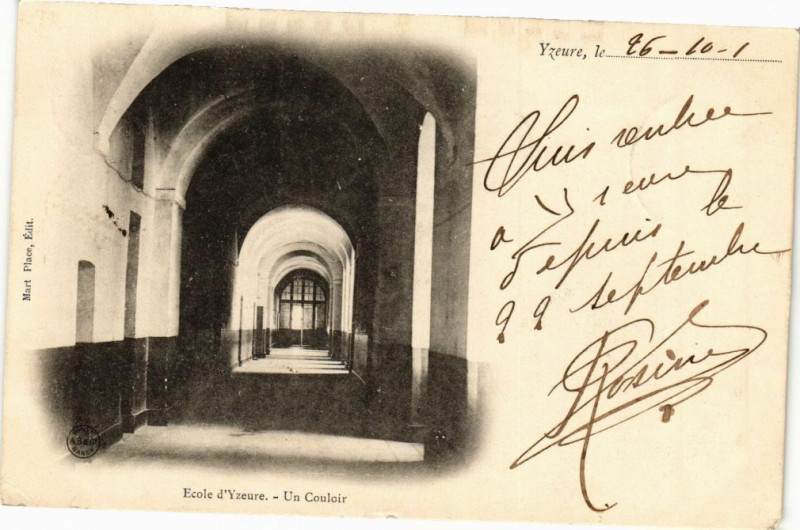 Yzeure, le 26-10-1
Suis rentrée
a Yzeure
depuis le
22 septembre
Rosine
Mart Place, Édit.
Ecole d'Yzeure. - Un Couloir